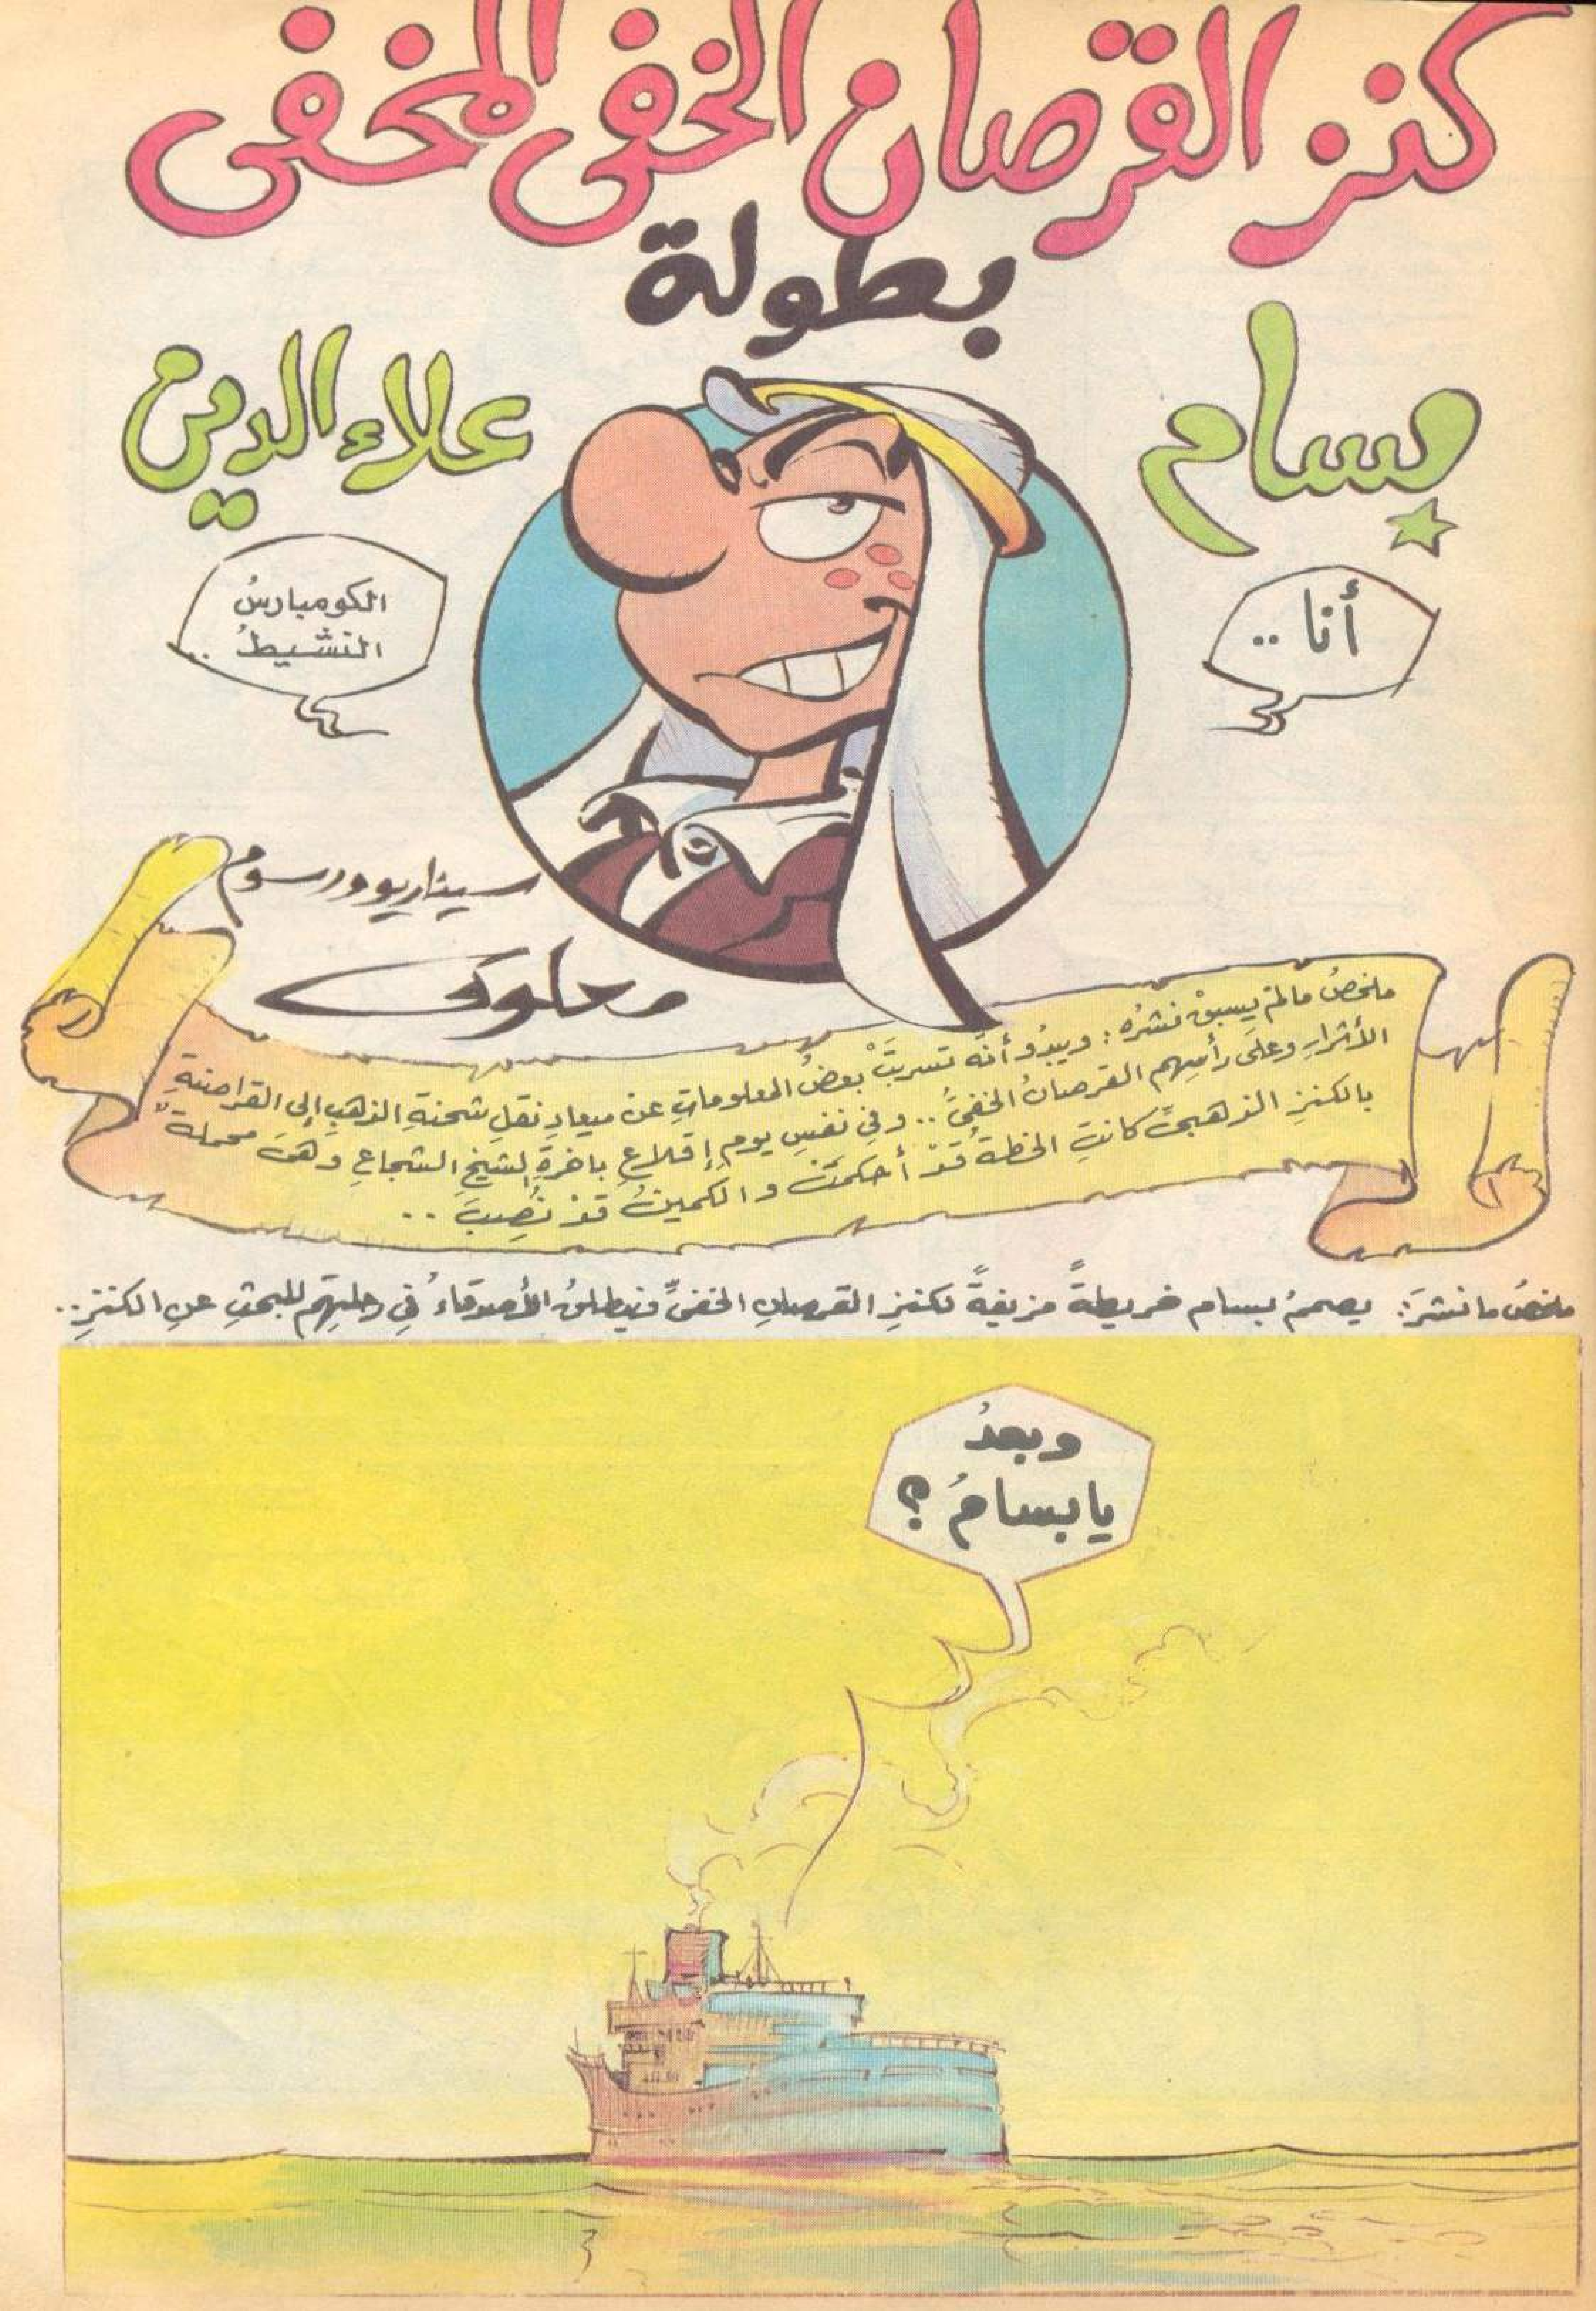 كنز القرصان الخفى المخفى
بطولة
بسام
علاء الدين
أنا ..
الكومبارسُ
النشيطُ ..
سيناريو ورسوم
ملخصُ مالمْ يسبقْ نشرُه: ويبدُو أنَّه تسربَتْ بعضُ المعلوماتِ عن ميعادِ نقلِ شحنةِ الذهبِ إلى القراصنةِ
الأشرارِ وعلَى رأسِهم القرصانُ الخفىُّ .. وفى نفسِ يومِ إقلاعِ باخرةِ الشيخِ الشجاعِ وهىَ محملةٌ
بالكنزِ الذهبىِّ كانتِ الخطةُ قدْ أحكمَتْ والكمينُ قدْ نُصِبَ ..
ملخصُ مانُشرَ: يصممُ بسام خريطةً مزيفةً لكنزِ القرصانِ الخفىِّ فينطلقُ الأصدقاءُ فى رحلتِهم للبحثِ عنِ الكنزِ..
وبعدُ
يابسامُ ؟